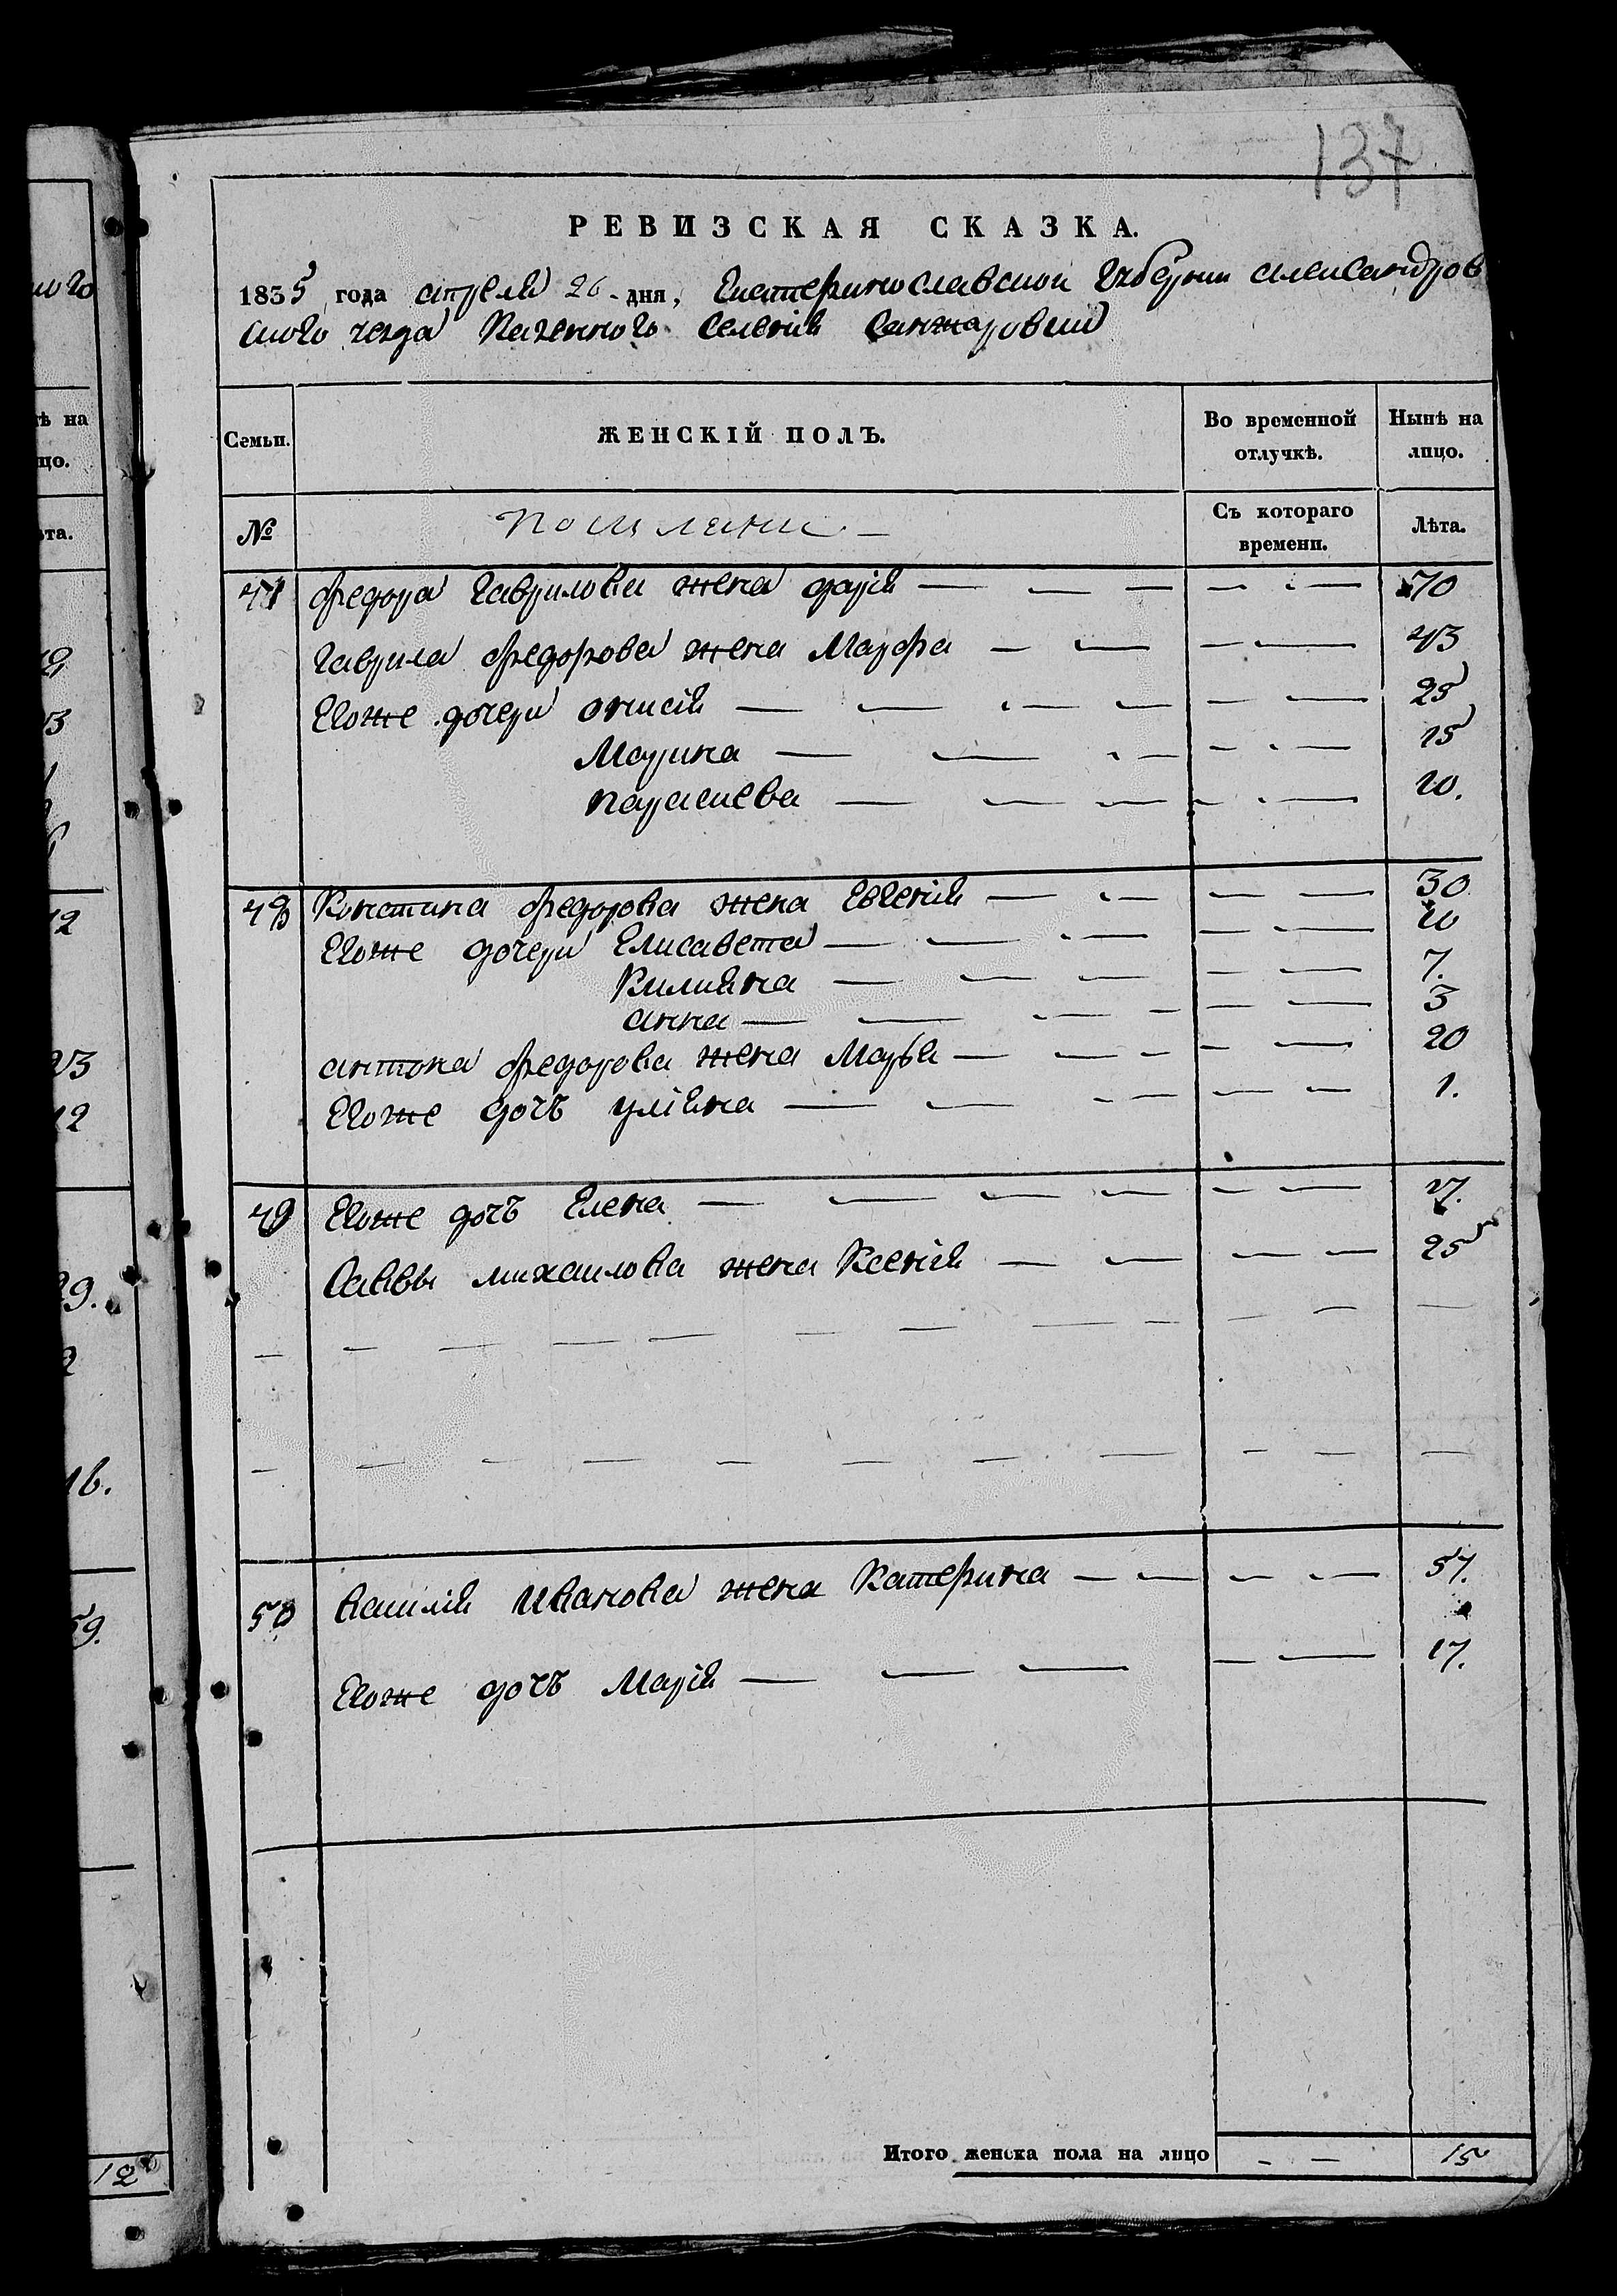 137
РЕВИЗСКАЯ СКАЗКА.
1835 года апреля 26 дня, Екатеринославской Губернии александров
ского уезда Казенного Селения Санжаровки
Семьи. ЖЕНСКІЙ ПОЛЪ. Во временной отлучкѣ. Нынѣ на лицо.
№ Съ котораго времени. Лѣта.
федора Гаврилова жена дарія 70
Гаврила федорова жена Марфа 43
Егоже дочери онисія 25
Марина 15
параскева 10.
48 Констина федорова жена Евгенія 30
Егоже дочери Елисавета 10
Килияна 7.
анна 3
антона федорова жена Марья 20
Егоже дочъ улияна 1.
49 Егоже дочъ Елена 17.
Саввы михаилова жена Ксенія 25
50 василія Иванова жена Катерина 57.
Егоже дочъ Марія 17.
Итого женска пола на лицо 15
ѣ на
цо.
та.
23
12
29.
16.
59.
12